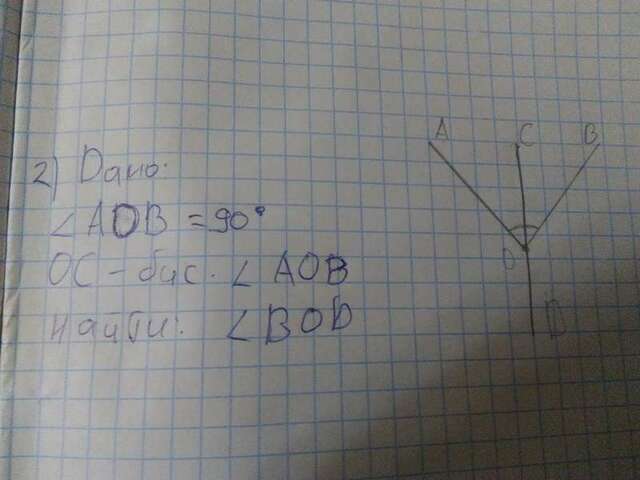 2) Дано:
∠AOB = 90°
OC - бис. ∠ AOB
Найти: ∠BOD
A C B
O
D